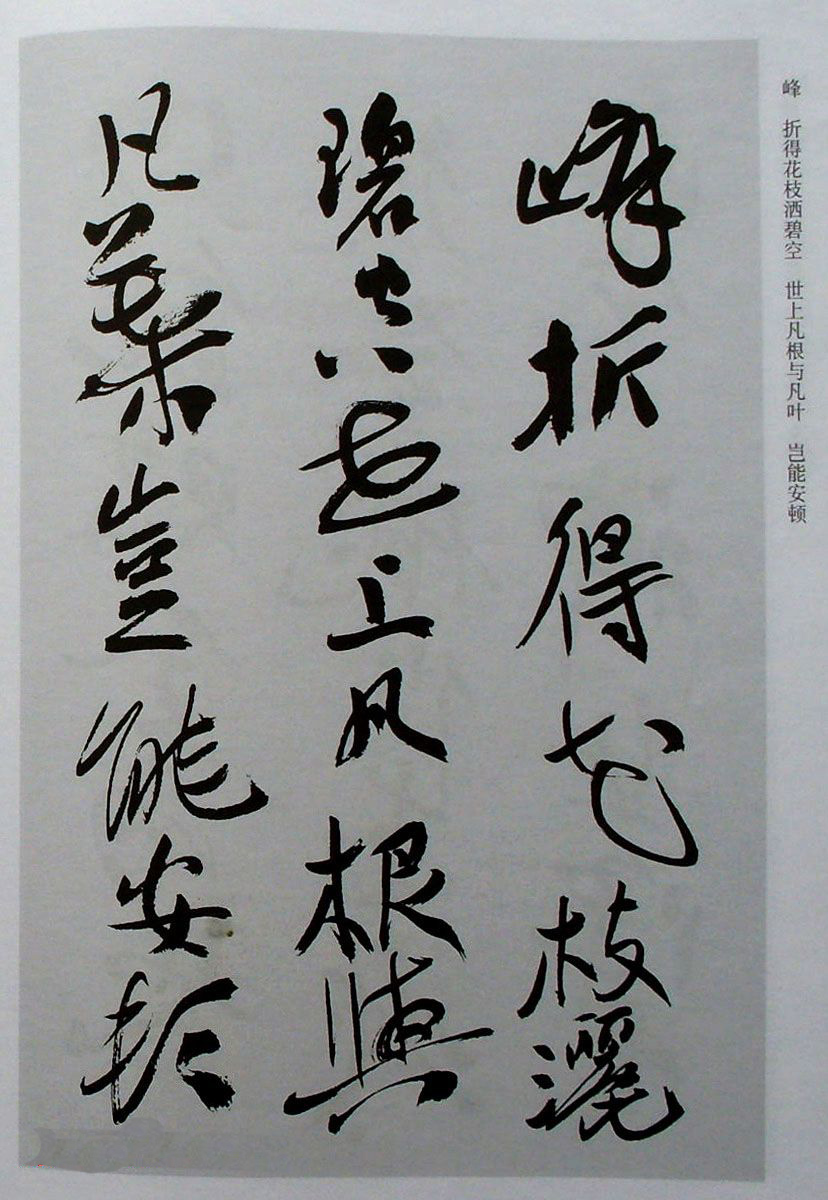 峰 折得花枝洒碧空 世上凡根与凡叶 岂能安顿
峰折得花枝灑
碧空世上凡根與
凡葉豈能安頓